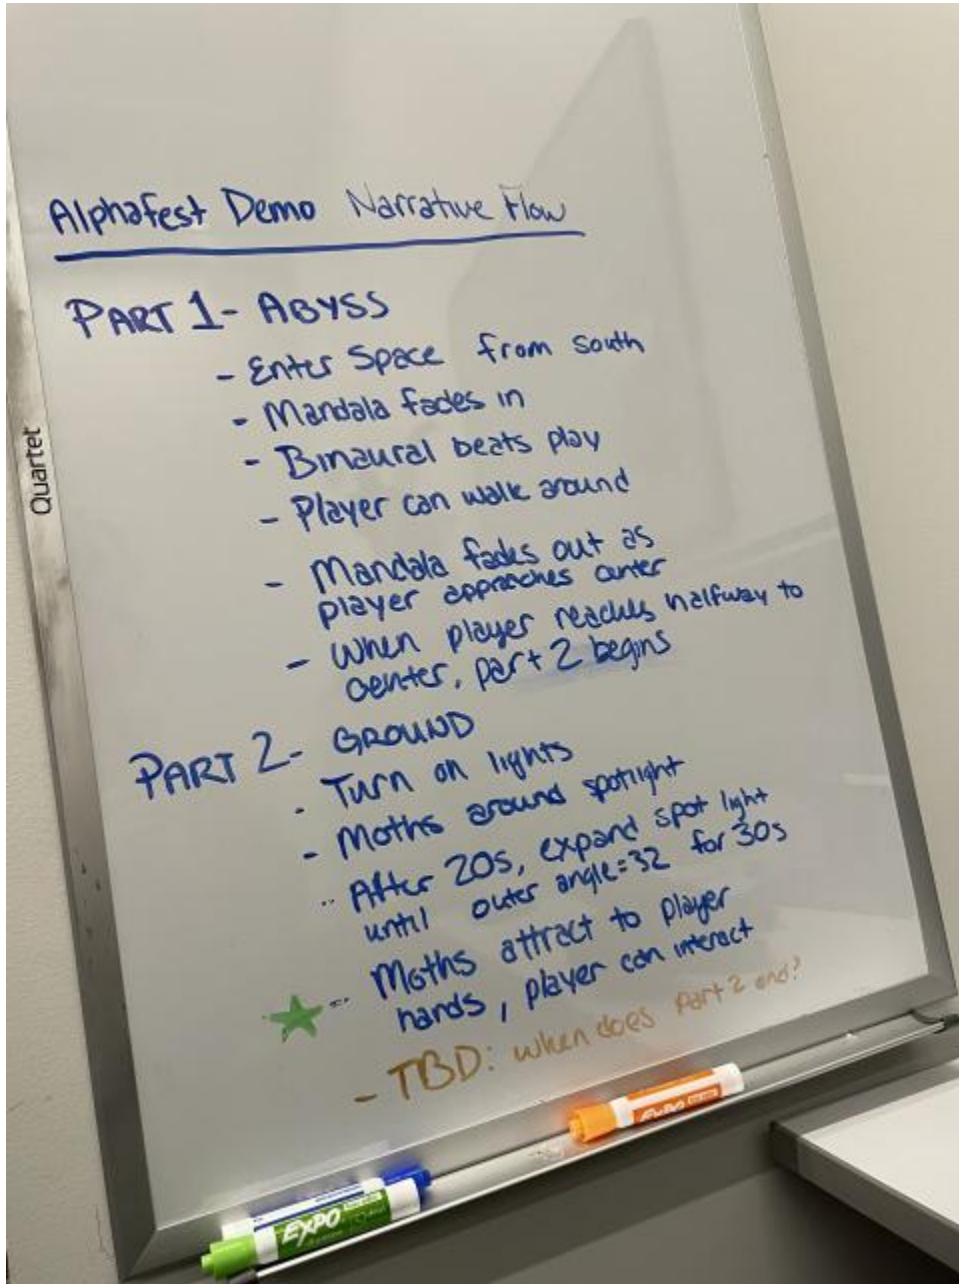 Alphafest Demo Narrative Flow
PART 1 - ABYSS
- Enter Space from south
- Mandala fades in
- Binaural beats play
- Player can walk around
- Mandala fades out as
player approaches center
- When player reaches halfway to
center, part 2 begins
PART 2 - GROUND
- Turn on lights
- Moths around spotlight
- After 20s, expand spot light
until outer angle=32 for 30s
- Moths attract to player
hands, player can interact
- TBD: when does part 2 end?
Quartet
EXPO
EXPO